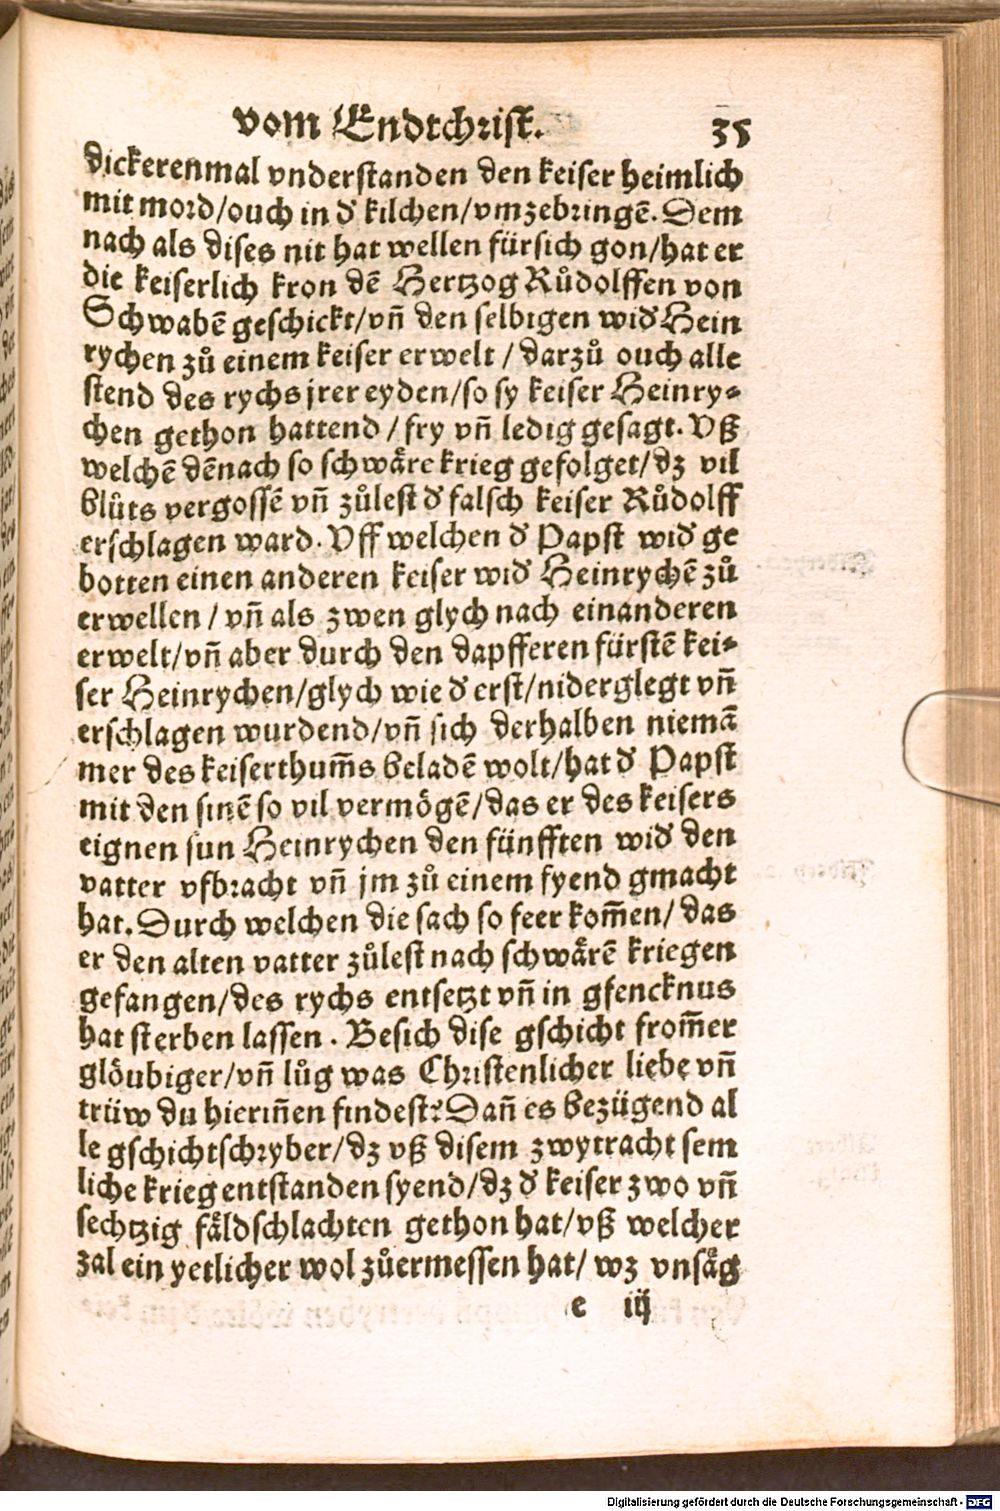 vom Endtchrist. 35
dickerenmal vnderstanden den keiser heimlich
mit mord/ouch in d' kilchen/vmzebringē. Dem
nach als dises nit hat wellen fürsich gon/hat er
die keiserlich kron dē Hertzog Růdolffen von
Schwabē geschickt/vñ den selbigen wid' Hein
rychen zů einem keiser erwelt / darzů ouch alle
stend des rychs jrer eyden/so sy keiser Heinry⸗
chen gethon hattend / fry vñ ledig gesagt. Vß
welchē dēnach so schwåre krieg gefolget/dz vil
blůts vergossē vñ zůlest d' falsch keiser Růdolff
erschlagen ward. Vff welchen d' Papst wid' ge
botten einen anderen keiser wid' Heinrychē zů
erwellen / vñ als zwen glych nach einanderen
erwelt/vñ aber durch den dapfferen fürstē kei⸗
ser Heinrychen/glych wie d' erst/niderglegt vñ
erschlagen wurdend/vñ sich derhalben niemā
mer des keiserthum̄s beladē wolt/hat d' Papst
mit den sinē so vil vermögē/das er des keisers
eignen sun Heinrychen den fünfften wid' den
vatter vfbracht vñ jm zů einem fyend gmacht
hat. Durch welchen die sach so feer kom̄en/ das
er den alten vatter zůlest nach schwårē kriegen
gefangen/des rychs entsetzt vñ in gfencknus
hat sterben lassen . Besich dise gschicht from̄er
glöubiger/vñ lůg was Christenlicher liebe vñ
trüw du hieriñen findest? Dañ es bezügend al
le gschichtschryber/dz vß disem zwytracht sem
liche krieg entstanden syend/dz d' keiser zwo vñ
sechtzig fåldschlachten gethon hat/vß welcher
zal ein yetlicher wol zůermessen hat/ wz vnsåg
e iij
Digitalisierung gefördert durch die Deutsche Forschungsgemeinschaft - DFG